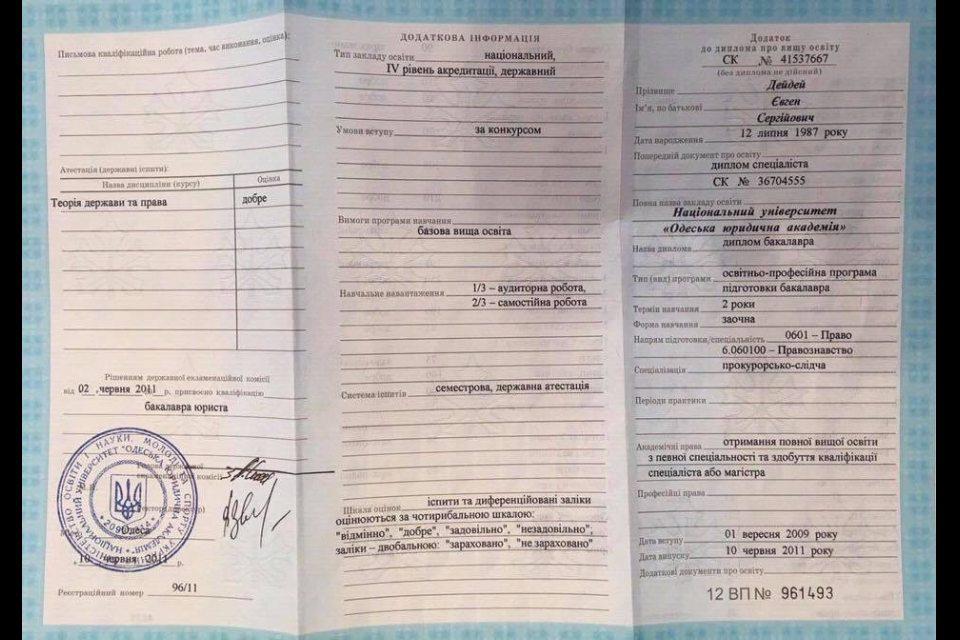 Письмова кваліфікаційна робота (тема, час виконання, оцінка):
Атестація (державні іспити):
Назва дисципліни (курсу) Оцінка
Теорія держави та права добре
Рішенням державної екзаменаційної комісії
від 02 червня 2011 р. присвоєно кваліфікацію
бакалавра юриста
Одеса
10 червня 2011 р.
Реєстраційний номер 96/11
ДОДАТКОВА ІНФОРМАЦІЯ
Тип закладу освіти національний,
IV рівень акредитації, державний
Умови вступу за конкурсом
Вимоги програми навчання
базова вища освіта
Навчальне навантаження 1/3 – аудиторна робота,
2/3 – самостійна робота
Система іспитів семестрова, державна атестація
Шкала оцінок іспити та диференційовані заліки
оцінюються за чотирибальною шкалою:
"відмінно", "добре", "задовільно", "незадовільно",
заліки – двобальною: "зараховано", "не зараховано"
Додаток
до диплома про вищу освіту
СК № 41537667
(без диплома не дійсний)
Прізвище Дейдей
Ім'я, по батькові Євген
Сергійович
Дата народження 12 липня 1987 року
Попередній документ про освіту
диплом спеціаліста
СК № 36704555
Повна назва закладу освіти
Національний університет
«Одеська юридична академія»
Назва диплома диплом бакалавра
Тип (вид) програми освітньо-професійна програма
підготовки бакалавра
Термін навчання 2 роки
Форма навчання заочна
Напрям підготовки/спеціальність 0601 – Право
6.060100 – Правознавство
Спеціалізація прокурорсько-слідча
Періоди практики
Академічні права отримання повної вищої освіти
з певної спеціальності та здобуття кваліфікації
спеціаліста або магістра
Професійні права
Дата вступу 01 вересня 2009 року
Дата випуску 10 червня 2011 року
Додаткові документи про освіту
12 ВП № 961493